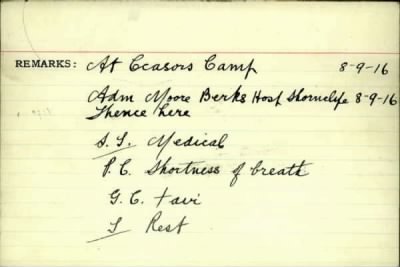 REMARKS: At Ceasors Camp 8-9-16
Adm Moore Berks Host Shornclife 8-9-16
Thence here
S. S. Medical
P. C. Shortness of breath
G. C. Fair
S Rest